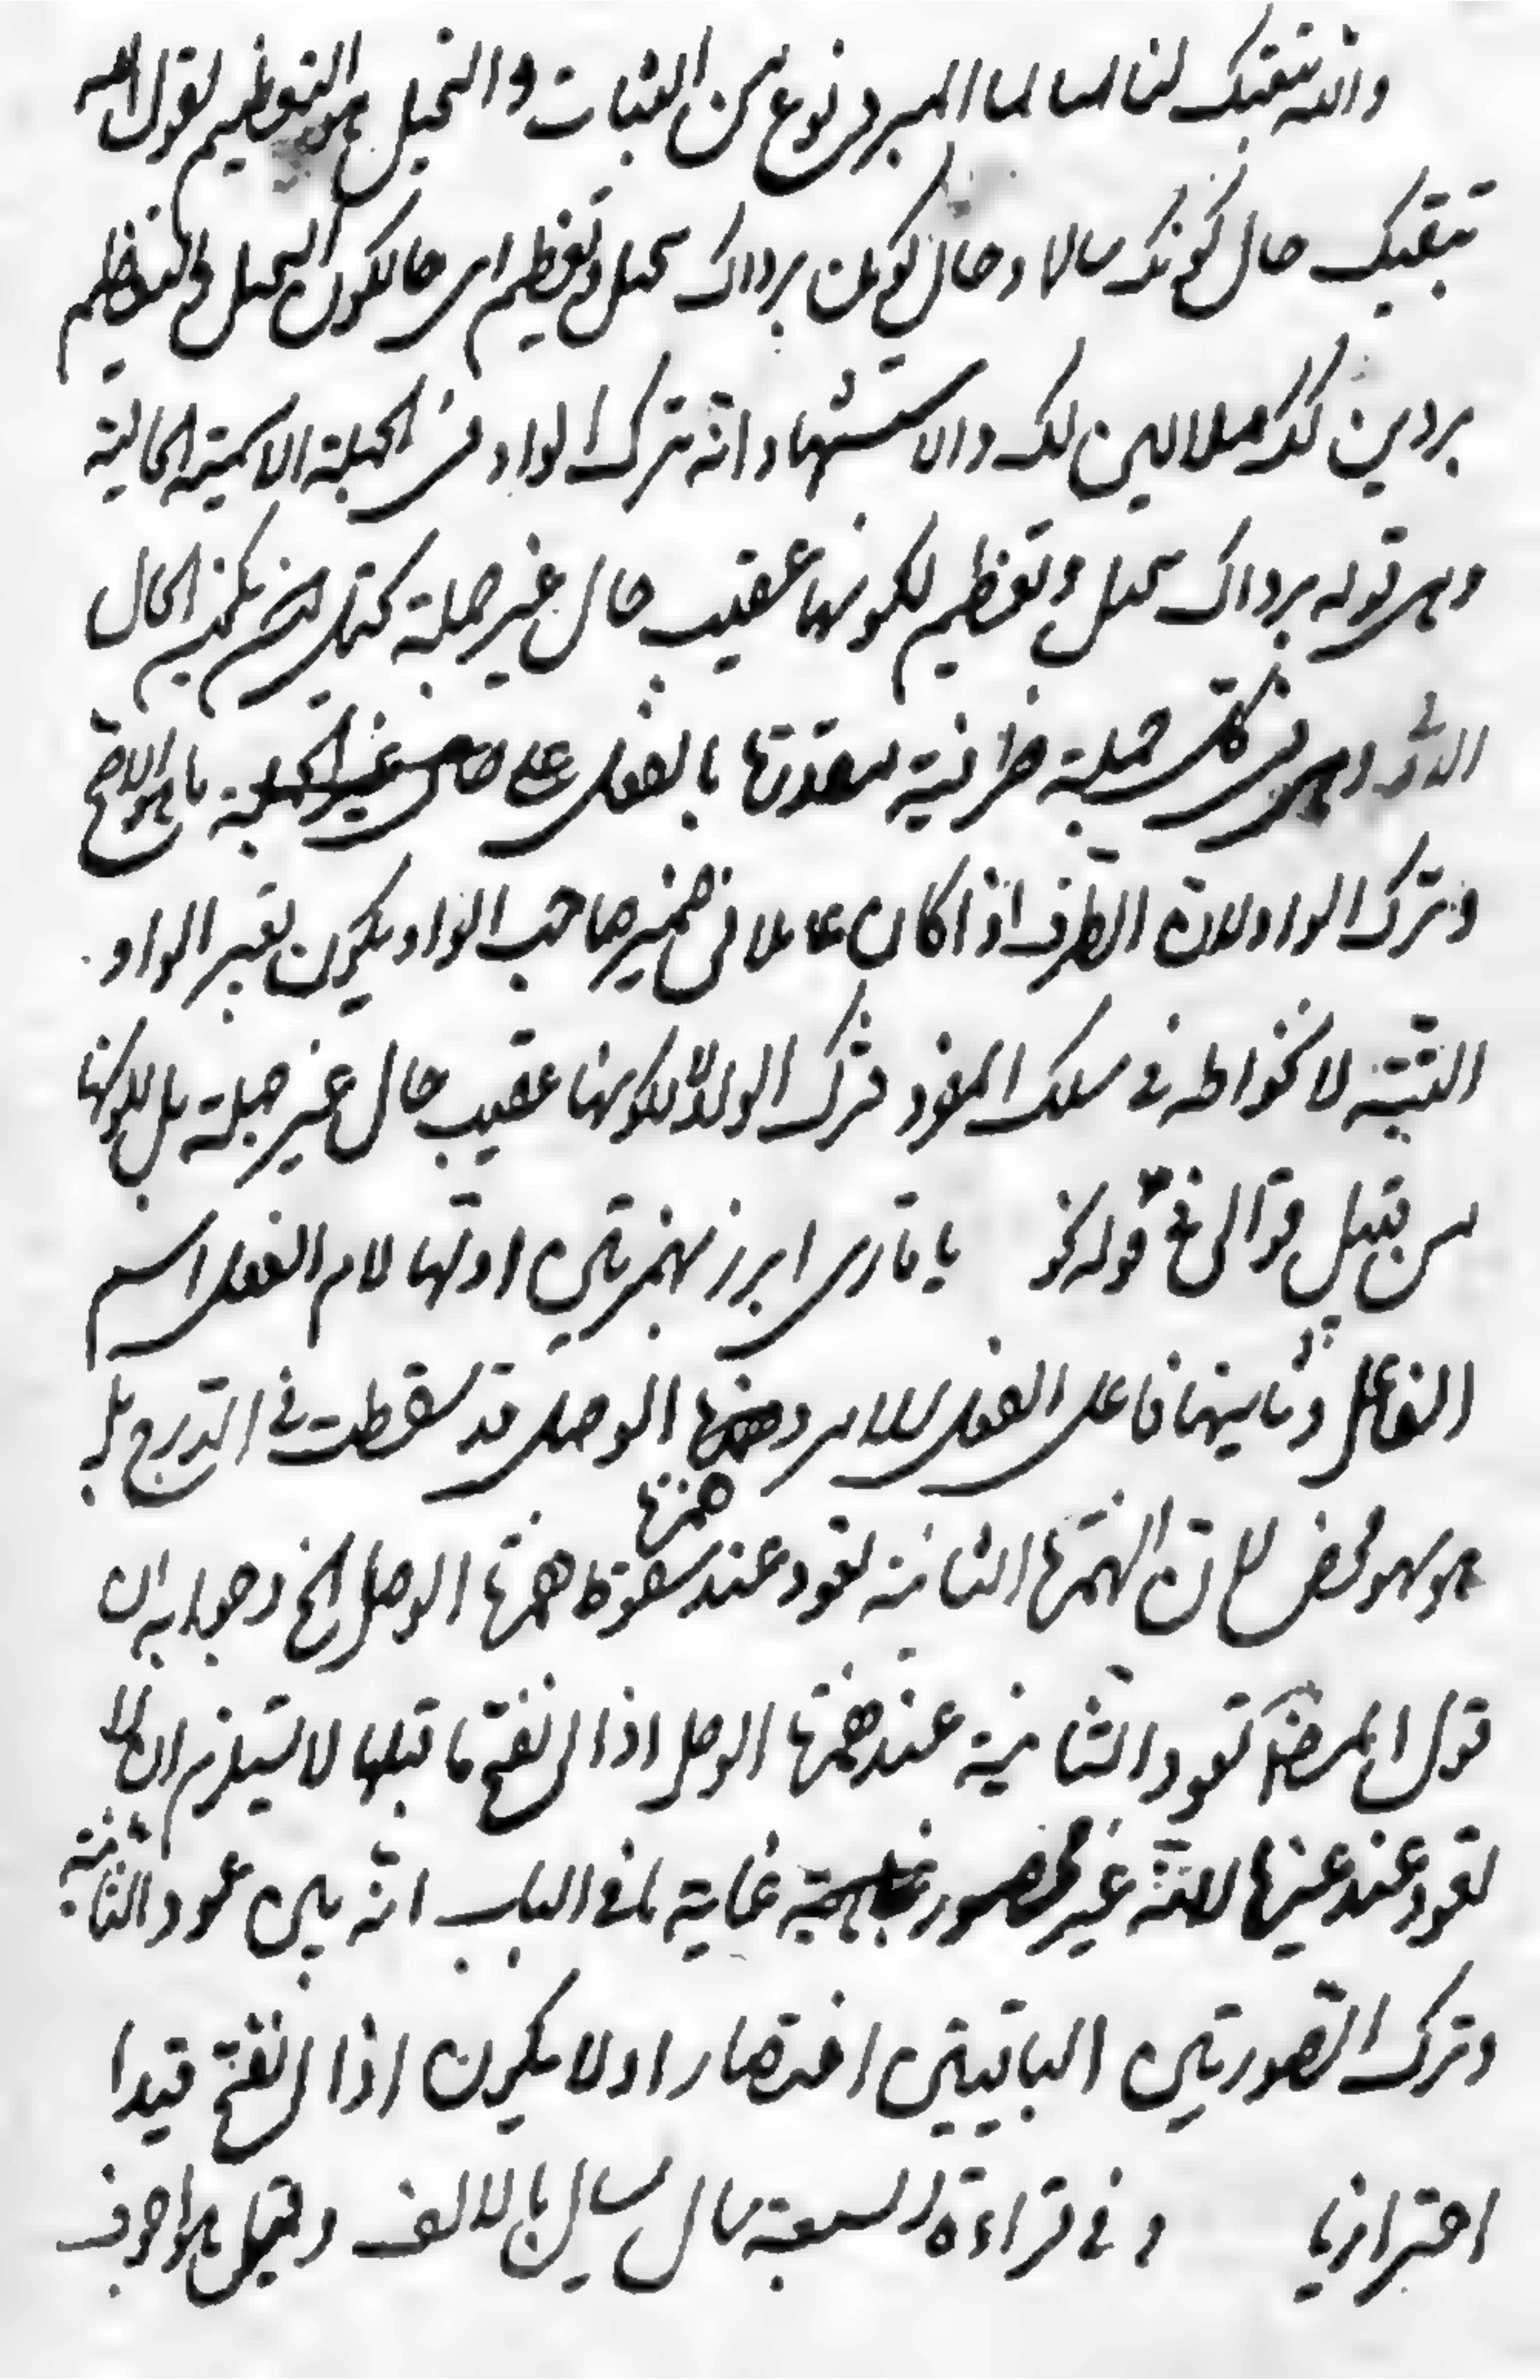 والله يبقيك لنا سالما البرد نوع من الثياب والتبجيل هو التعظيم يقول الله
يبقيك حال كونك سالما وحال كونك برداك تبجيل وتعظيم اى حال كون التبجيل والتعظيم
بردين لك مشتملين لك والاستشهاد انه ترك الواو فى الجملة الاسمية الحالية
وهى قوله برداك تبجيل وتعظيم لكونها عقيب حال غير جملة
وهى فى كل جملة ظرفية بالفعل على ما هو الاصح
وترك الواو لان الظرف اذا كان عاملا فى ضمير صاحب الواو يكون بغير الواو
البتة لانخراطه فى سلك المفرد فترك الواو لا لكونها عقيب حال غير جملة بل لكونها
من قبيل قوله نحو يا قارى ابرز بهمزتين اولها لام الفعل اسم
الفاعل وثانيها فاعل الفعل للامر وهمزتها الوصل قد سقطت فى الدرج بل
هو سهو محض لان الهمزة الثانية تعود عند سقوط همزتها الوصل الخ وجوابه ان
قول المصنف تعود الثانية عند همزتها الوصل اذا انفتح ما قبلها لا يستلزم ان لا
تعود عند غيرها لانه غير محصور غاية ما فى الباب انه بين عود الثانية
وترك الصورتين الباقيتين اختصارا ولا يكون اذا انفتح قيدا
احترازيا وفى قراءة السبعة سال سايل بالالف وقيل هو اجوف